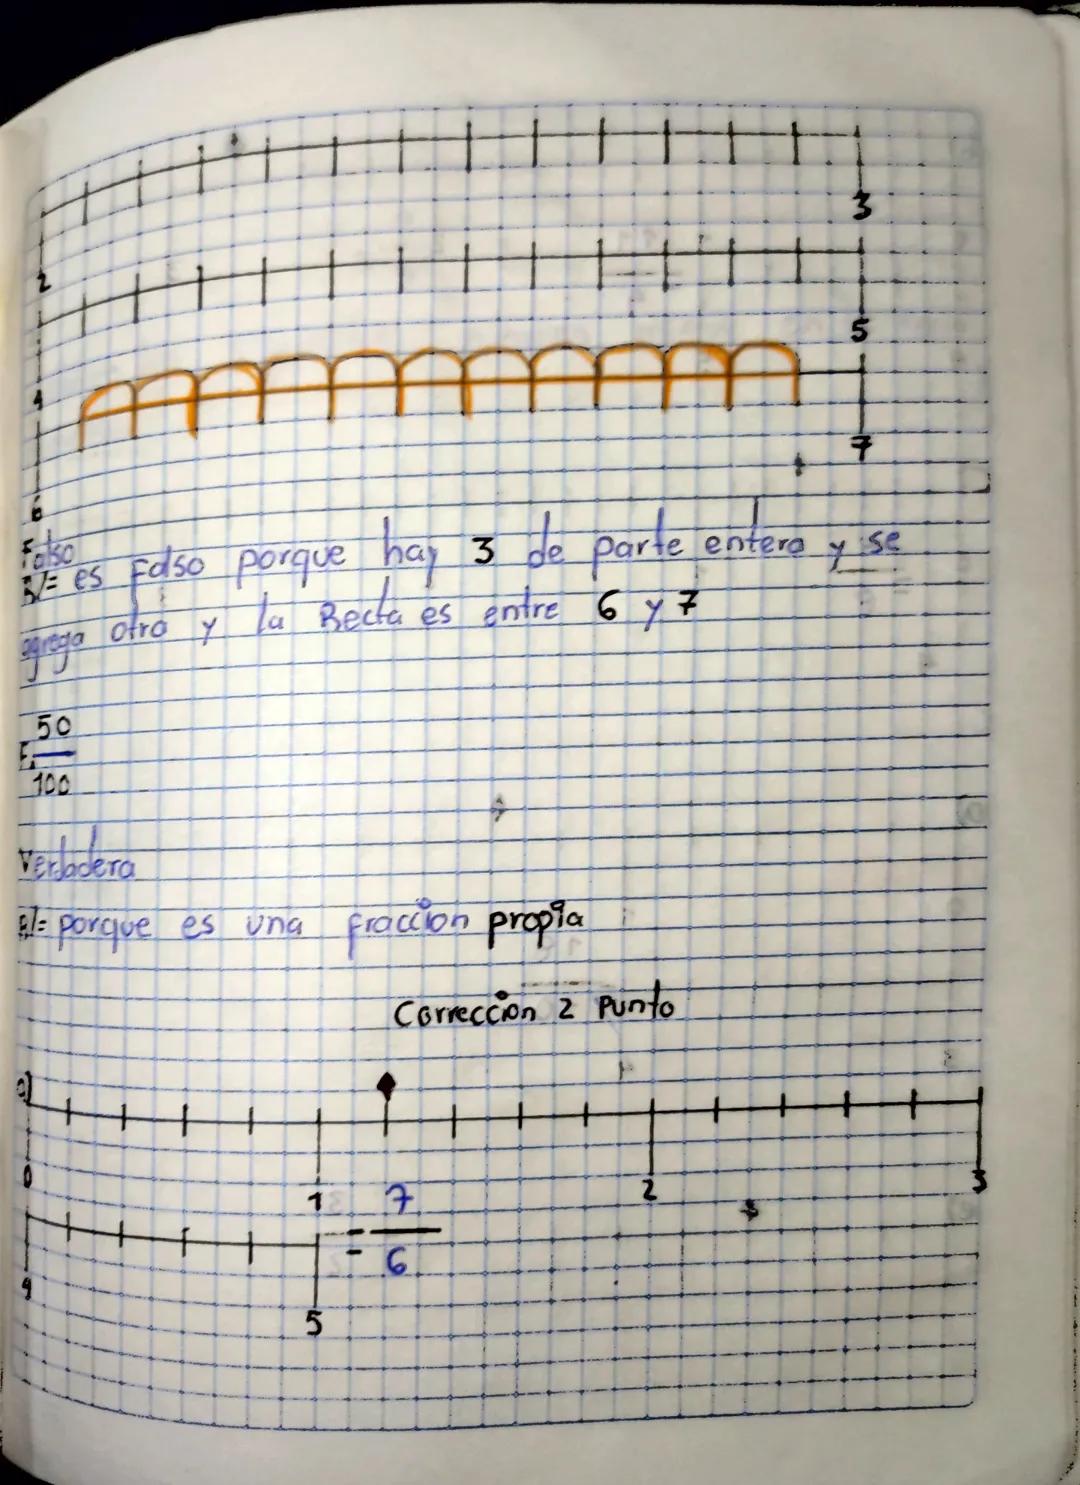 3
2
5
4
7
6
Falso
R/= es Falso porque hay 3 de parte entera y se
agrega otra y la Recta es entre 6 y 7
50
E.
100
Verdadera
R/= porque es una fraccion propia
Correccion 2 Punto
a)
0 1 2 3
7
=
6
4 5